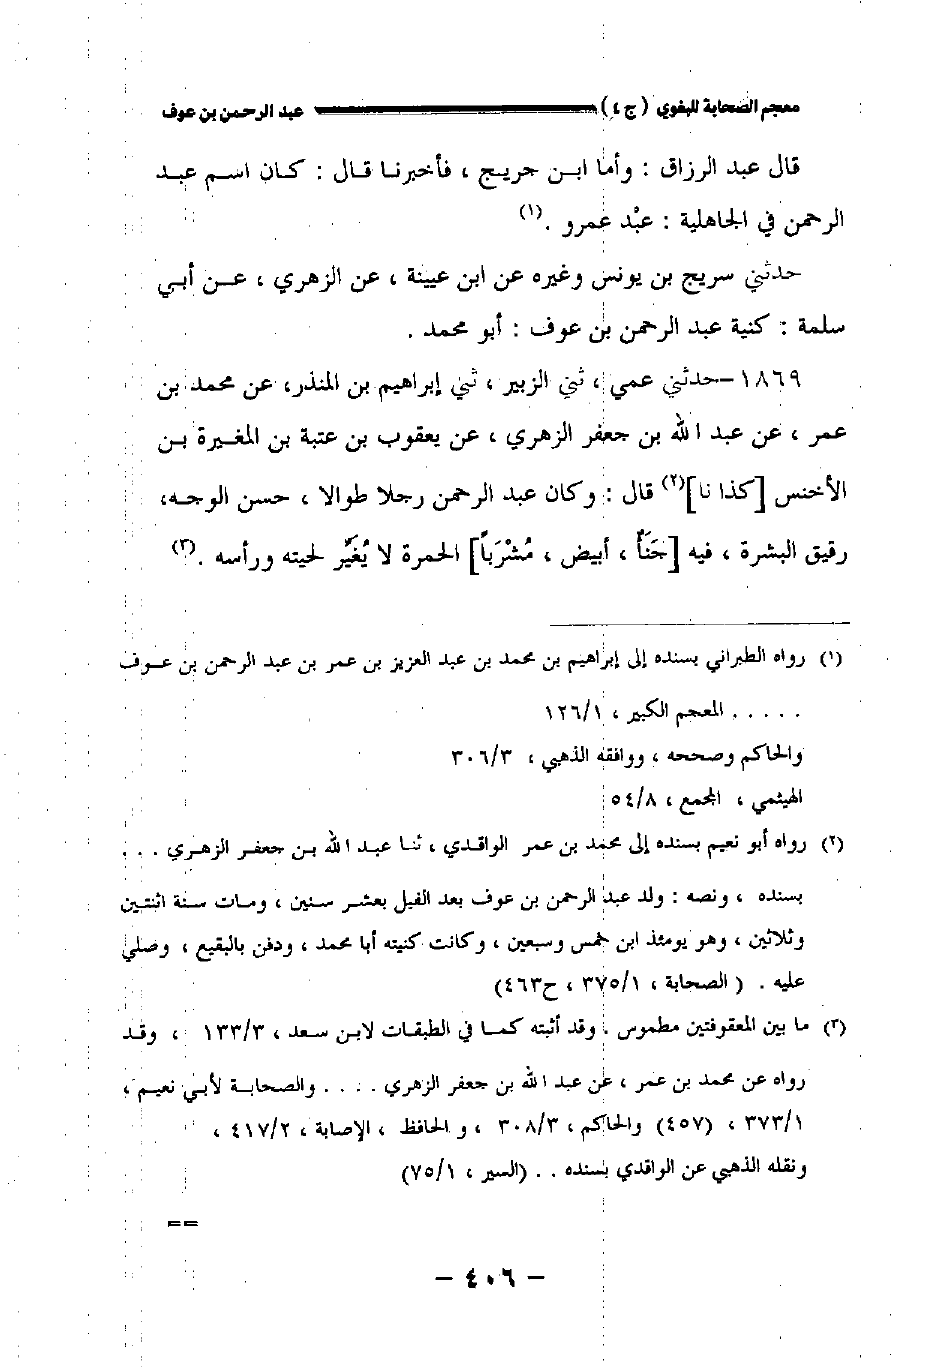 معجم الصحابة للبغوي (ج ٤) عبد الرحمن بن عوف
قال عبد الرزاق : وأما ابن جريج ، فأخبرنا قال : كان اسم عبد
الرحمن في الجاهلية : عبْد عمرو .(١)
حدثني سريج بن يونس وغيره عن ابن عيينة ، عن الزهري ، عن أبي
سلمة : كنية عبد الرحمن بن عوف : أبو محمد .
١٨٦٩ – حدثني عمي ، ثني الزبير ، ثني إبراهيم بن المنذر، عن محمد بن
عمر ، عن عبد الله بن جعفر الزهري ، عن يعقوب بن عتبة بن المغيرة بن
الأخنس [كذا نا](٢) قال : وكان عبد الرحمن رجلا طوالا ، حسن الوجه،
رقيق البشرة ، فيه [جَنَأٌ ، أبيض ، مُشْرَباً] الحمرة لا يُغَيِّر لحيته ورأسه .(٣)
(١) رواه الطبراني بسنده إلى إبراهيم بن محمد بن عبد العزيز بن عمر بن عبد الرحمن بن عوف
. . . . . المعجم الكبير ، ١٢٦/١
والحاكم وصححه ، ووافقه الذهبي ، ٣٠٦/٣
الهيثمي ، المجمع ، ٥٤/٨
(٢) رواه أبو نعيم بسنده إلى محمد بن عمر الواقدي ، ثنا عبد الله بن جعفر الزهري . . .
بسنده ، ونصه : ولد عبد الرحمن بن عوف بعد الفيل بعشر سنين ، ومات سنة اثنتين
وثلاثين ، وهو يومئذ ابن خمس وسبعين ، وكانت كنيته أبا محمد ، ودفن بالبقيع ، وصلي
عليه . ( الصحابة ، ٣٧٥/١ ، ح٤٦٣)
(٣) ما بين المعقوفتين مطموس . وقد أثبته كما في الطبقات لابن سعد ، ١٣٣/٣ ، وقد
رواه عن محمد بن عمر ، عن عبد الله بن جعفر الزهري . . . . والصحابة لأبي نعيم ،
٣٧٣/١ ، (٤٥٧) والحاكم ، ٣٠٨/٣ ، و الحافظ ، الإصابة ، ٤١٧/٢ ،
ونقله الذهبي عن الواقدي بسنده . . (السير ، ٧٥/١)
==
– ٤٠٦ –